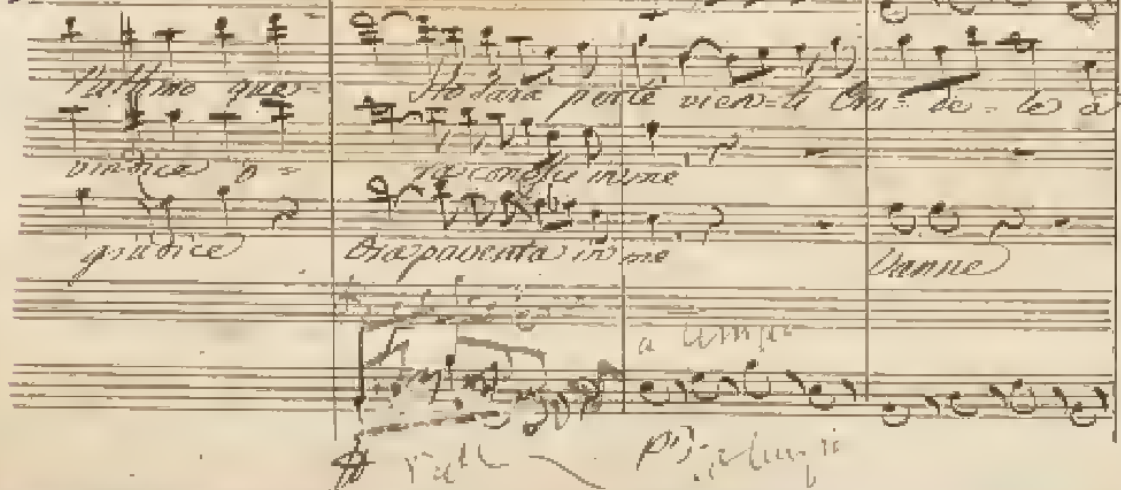 l'ultimo ques= sto sara per te vien=ti Cru=de=le a
vindice o= ra conosci in me
giudice Ora paventa in me Vanne
a tempo
a tempo